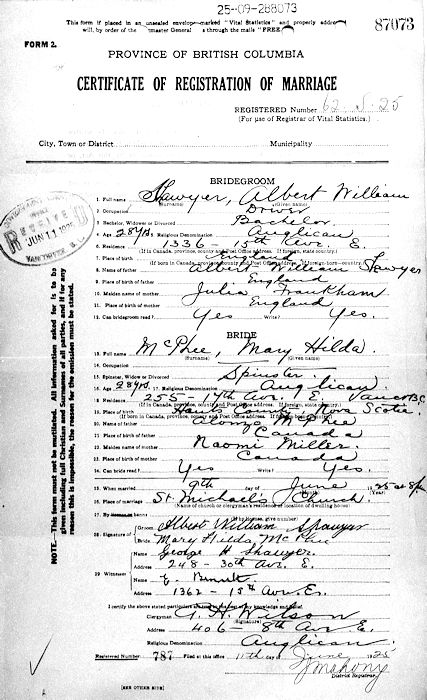 25-09-288073
This form if placed in an unsealed envelope marked "Vital Statistics" and properly addre
will, by order of the tmaster General s through the mails "FREE
87073
FORM 2.
PROVINCE OF BRITISH COLUMBIA
CERTIFICATE OF REGISTRATION OF MARRIAGE
REGISTERED Number 62 S. 25
(For use of Registrar of Vital Statistics.)
City, Town or District Municipality
BRIDEGROOM
1. Full name Shawyer, Albert William
(Surname) (Given name)
2. Occupation Driver
3. Bachelor, Widower or Divorced Bachelor.
4. Age 28 yrs. 5. Religious Denomination Anglican
6. Residence 1336 - 15th Ave. E.
(If in Canada, province, county and Post Office address. If foreign, state country.)
7. Place of birth England
(If born in Canada, province, county and Post Office address. If foreign born—country.)
8. Name of father Albert William Shawyer
9. Place of birth of father England
10. Maiden name of mother Julia Frankham
11. Place of birth of mother England
12. Can bridegroom read? Yes Write? Yes.
BRIDE
13. Full name McPhee, Mary Hilda.
(Surname) (Given name)
14. Occupation
15. Spinster, Widow or Divorced Spinster.
16. Age 28 yrs. 17. Religious Denomination Anglican.
18. Residence 255 - 17th Ave. E. Vanc. B.C.
(If in Canada, province, county and Post Office address. If foreign, state country.)
19. Place of birth Hants County Nova Scotia.
20. Name of father Alonzo McPhee
21. Place of birth of father Canada
22. Maiden name of mother Naomi Miller.
23. Place of birth of mother Canada
24. Can bride read? Yes Write? Yes.
25. When married 9th day of June 1925 at 8 p.m.
(Year)
26. Place of marriage St. Michael's Church.
(Name of church or clergyman's residence or location of dwelling house)
27. By license or banns
(If by license, give number)
28. Signature of Groom Albert William Shawyer
Bride Mary Hilda McPhee
29. Witnessed Name George H Shawyer.
Address 248 - 30th Ave. E.
Name E. Bennett
Address 1362 - 15th Ave. E.
I certify the above stated particulars are true to the best of my knowledge and belief.
Clergyman G. H. Wilson
(Signature)
Address 406 - 8th Ave E.
Religious Denomination Anglican
Registered Number 787 Filed at this office 11th day June 1925
J Mahony
District Registrar.
[SEE OTHER SIDE]
NOTE.—This form must not be mutilated. All information asked for is to be
given including full Christian and Surnames of all parties, and if for any
reason this is impossible, the reason for the omission must be stated.
RECEIVED
JUN 11 1925
VANCOUVER, B. C.